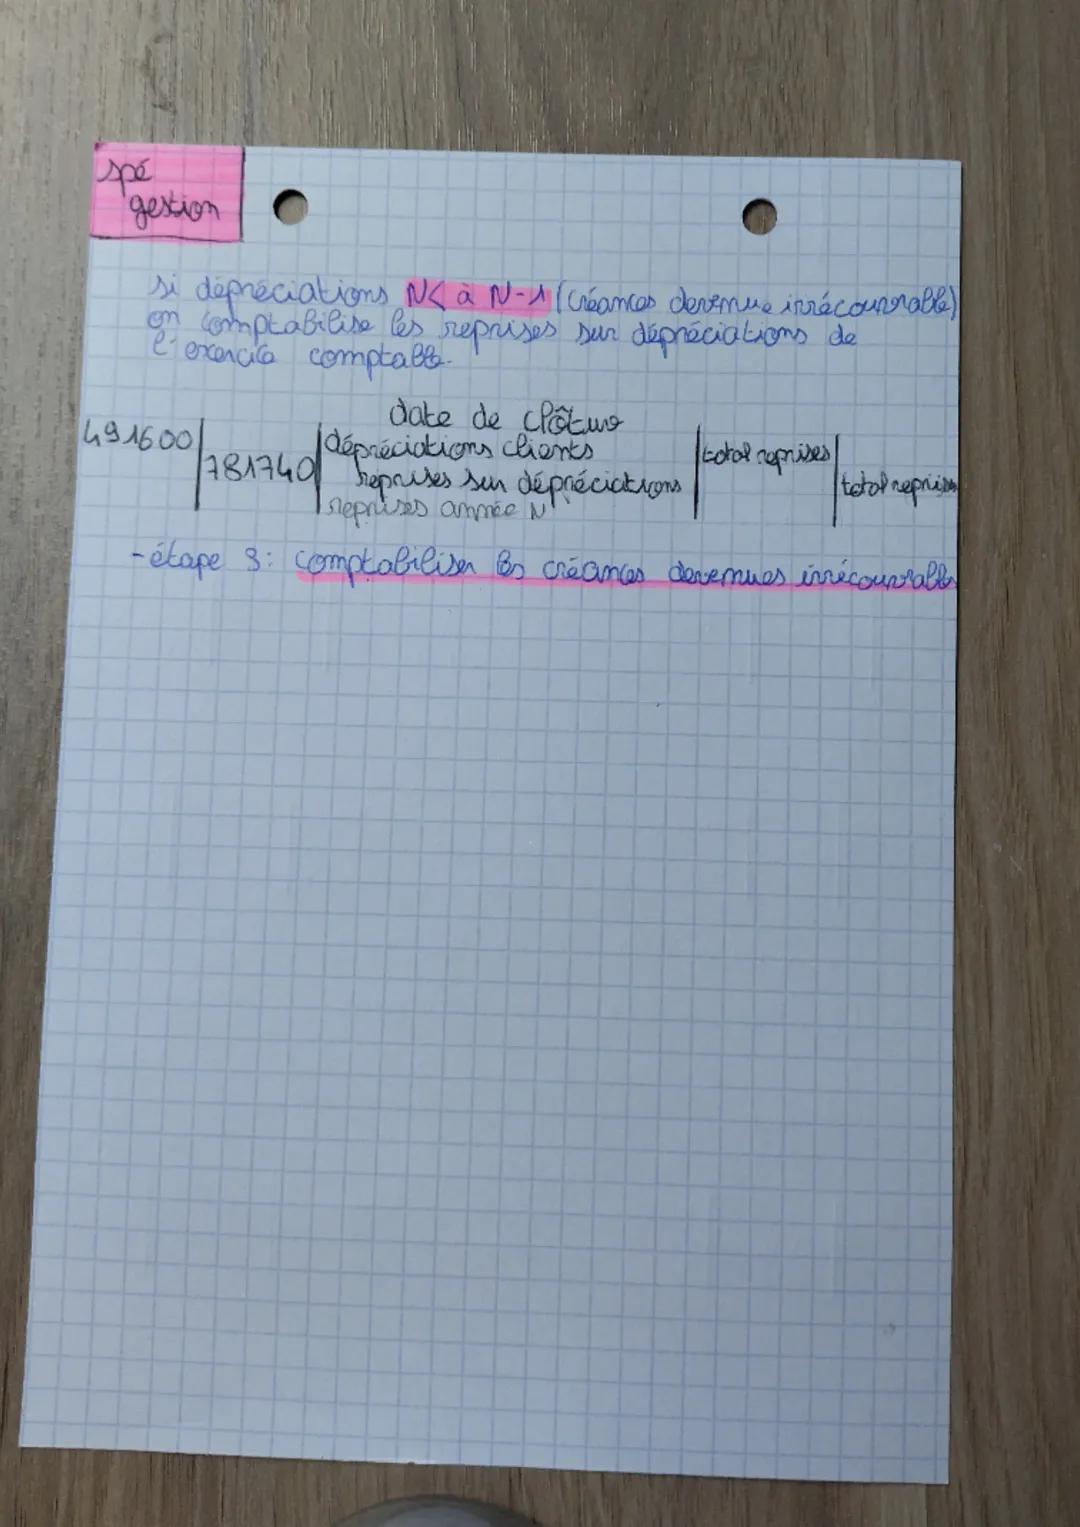 spé
gestion
si dépréciations N< à N-1 (créances devenue irrécouvrable)
on comptabilise les reprises sur dépréciations de
l'exercice comptable.
date de clôture
491600 dépréciations clients total reprises
781740 reprises sur dépréciations total reprises
reprises année N
- étape 3: comptabiliser les créances devenues irrécouvrables